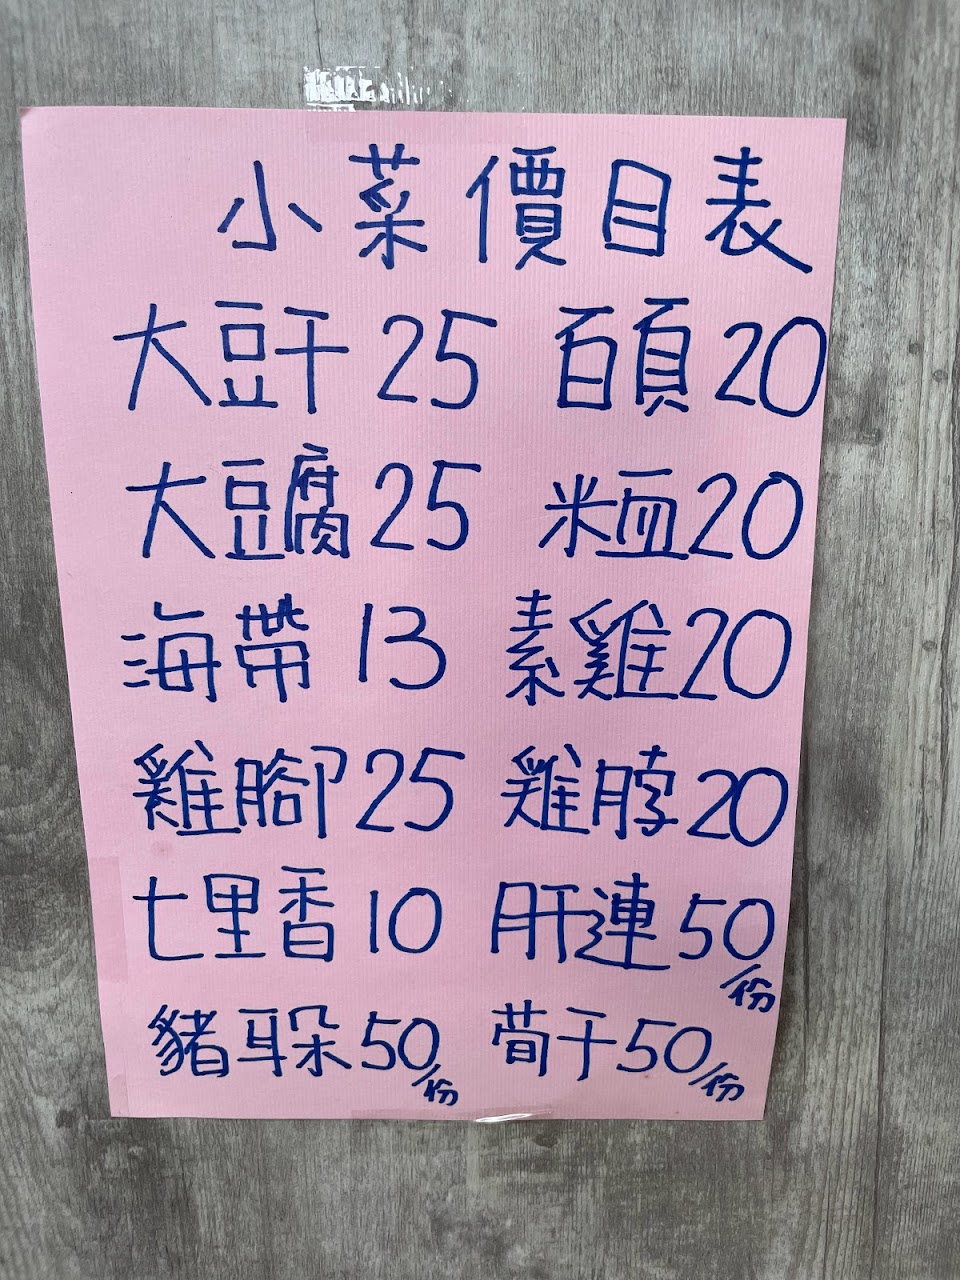 小菜價目表
大豆干 25 百頁 20
大豆腐 25 米血 20
海帶 13 素雞 20
雞腳 25 雞脖 20
七里香 10 肝連 50/份
豬耳朵 50/份 荀干 50/份